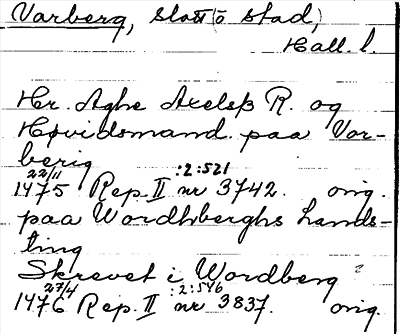 Varberg, slott (o stad)
Hall. l.
Hr. Aghe Axelsß R. og
Høvidsmand paa Var-
berig
22/11 :2:521
1475 Rep. II nr 3742. orig.
paa Wordhberghs Lands-
ting
Skrevet i Wordberg
27/4 :2:546
1476 Rep. II nr 3837. orig.